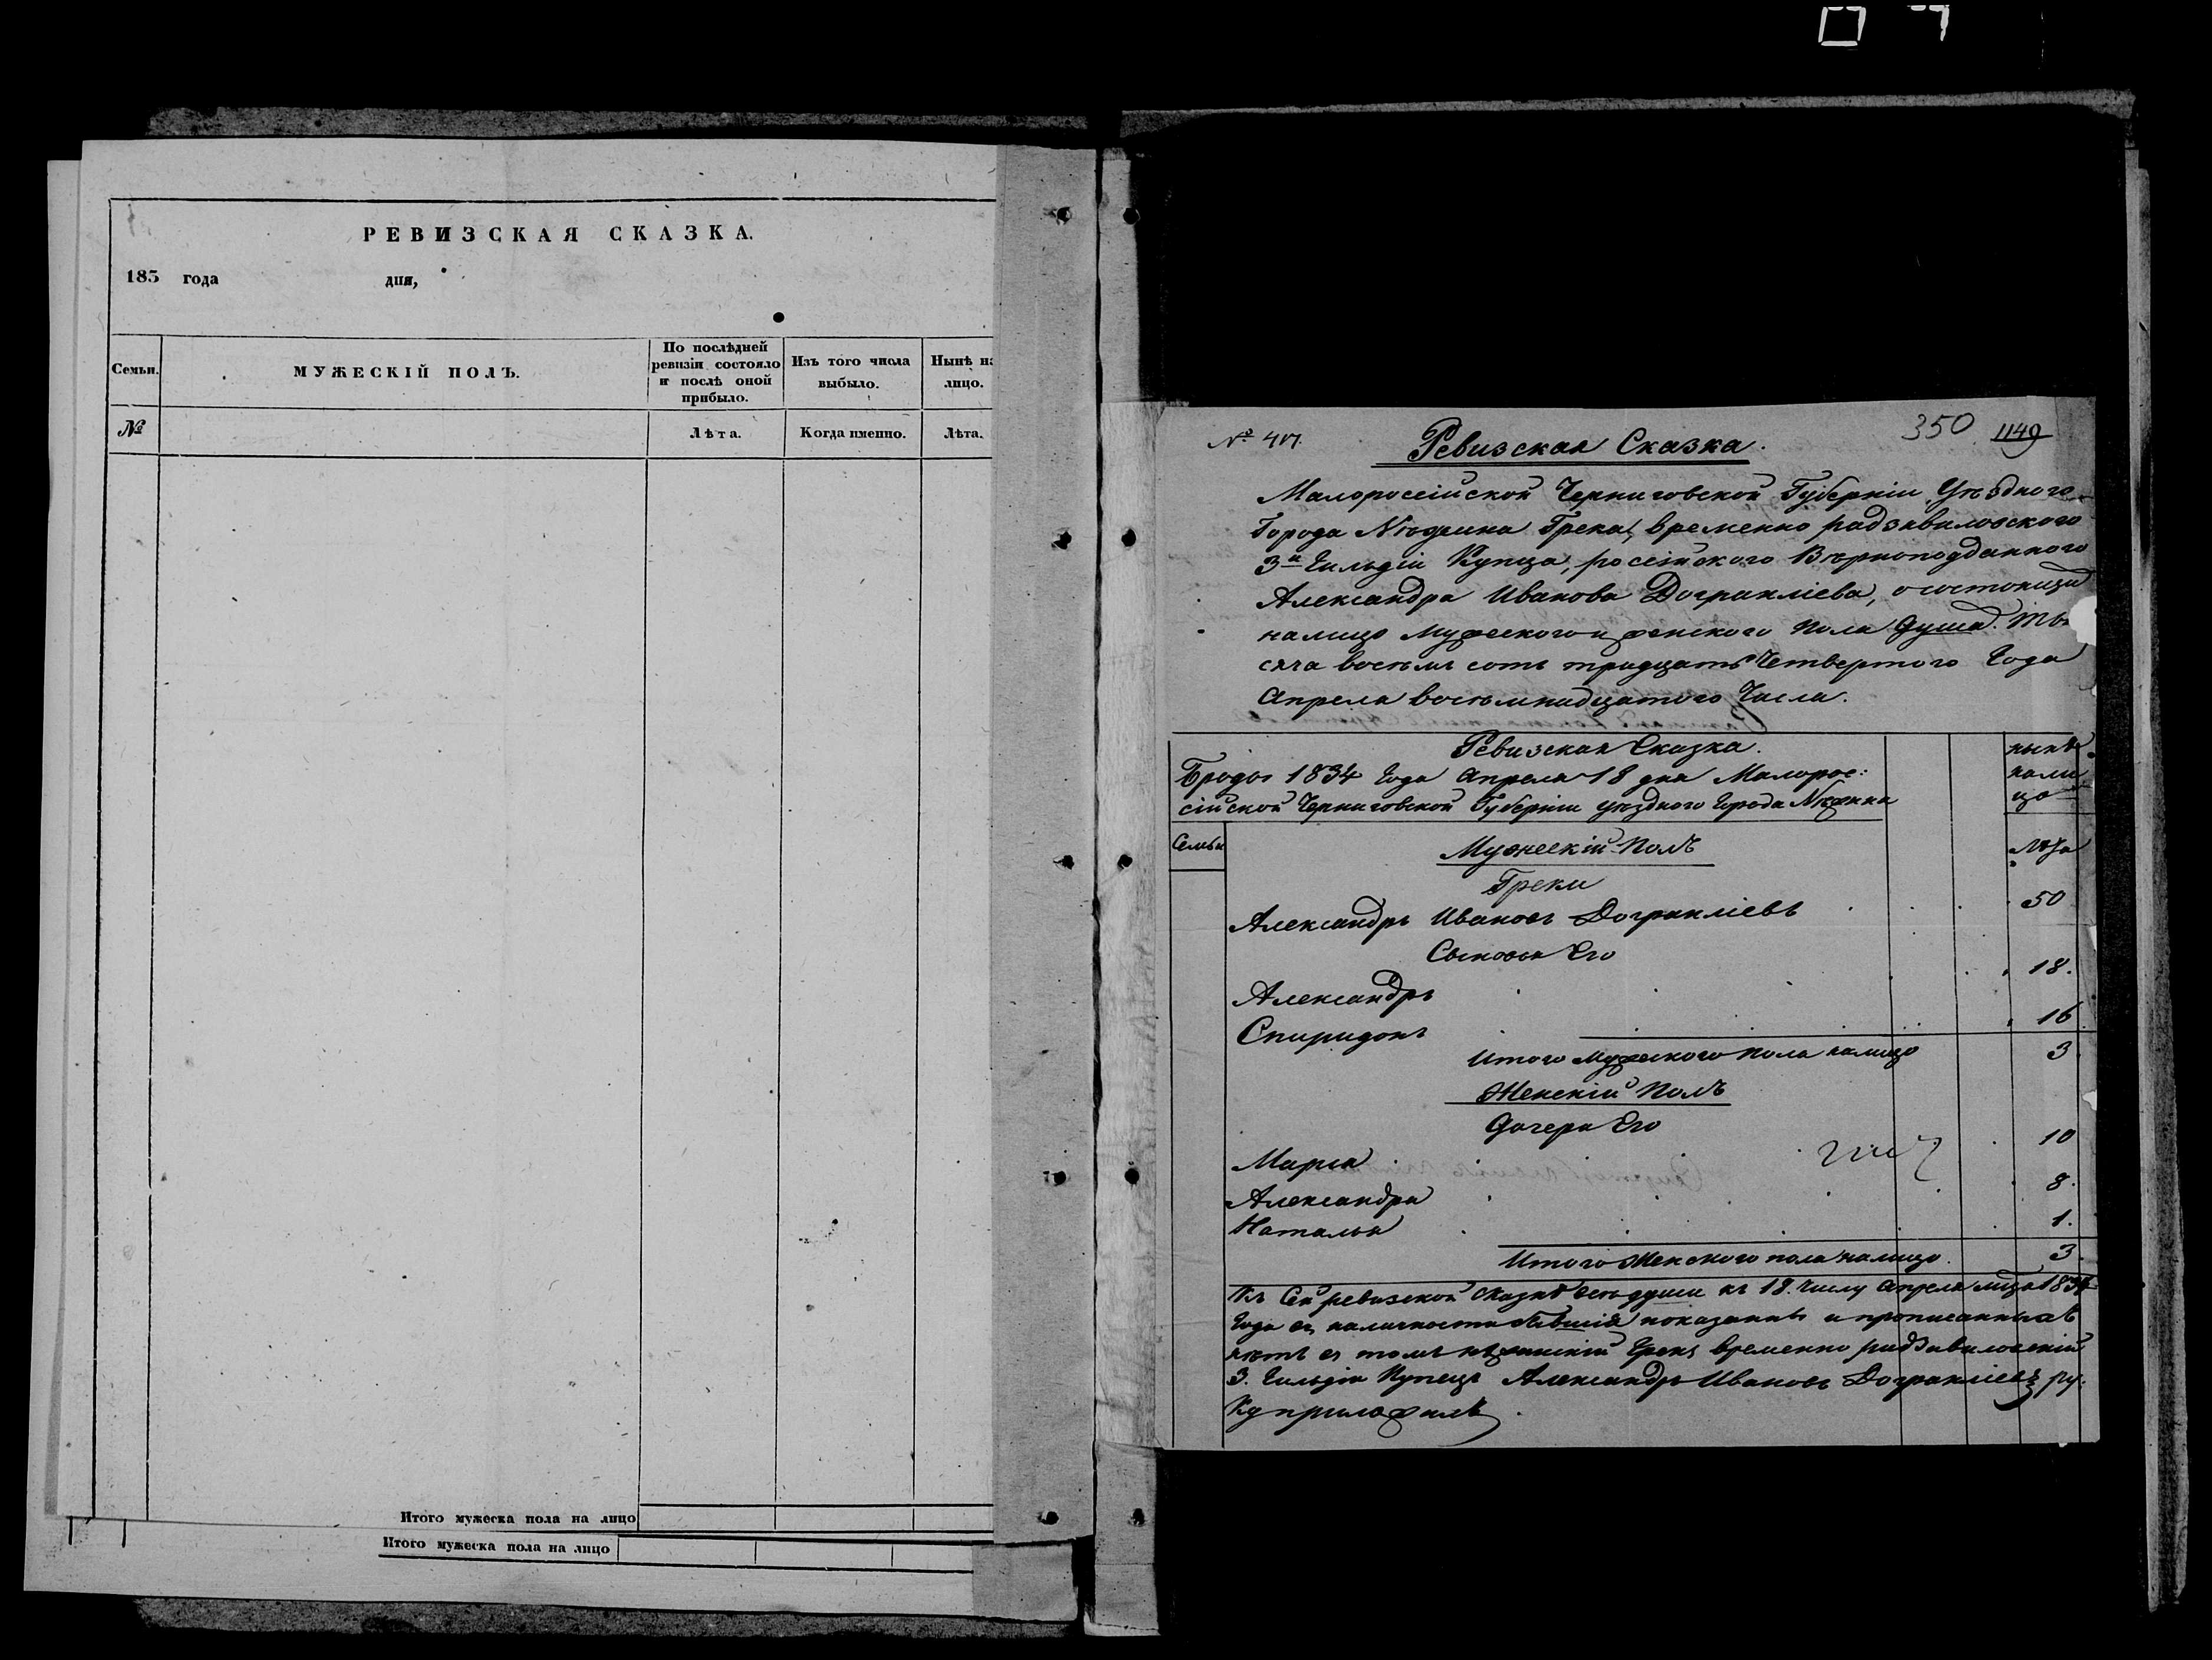 РЕВИЗСКАЯ СКАЗКА.
185 года дня,
Семьи.
МУЖЕСКІЙ ПОЛЪ.
По послѣдней
ревизіи состояло
и послѣ оной
прибыло.
Изъ того числа
выбыло.
Нынѣ на
лицо.
№
Лѣта.
Когда именно.
Лѣта.
Итого мужеска пола на лицо
Итого мужеска пола на лицо
350 1149
№
Ревизская Сказка.
Малоросеійской Черниговской Губерніи Уѣздного
Города Нѣжина Грека, временно радзивиловского
3й Гильдіи Купца, росеійского Вѣрноподданного
Александра Иванова Дограклiева, о состоящи
налицо Мужеского и женского Пола Душа. Ты-
сяча восемь сотъ тридцать Четвертого Года
Апреля восемнадцатого Числа.
Ревизская Сказка.
Броды 1834 Года Апреля 18 дня Малорос:
сійской Черниговской Губерніи уѣздного Города Нѣжина
нынѣ
нали
цо
Семьи
Мужескій Полъ
Лѣта
Греки
Александръ Ивановъ Дограклiевъ 50
Сыновья Его
Александръ 18.
Спиридонъ 16
Итого Мужеского пола налицо 3
Женскій Полъ
Дочери Его
Марія 10
Александра 8.
Наталья 1.
Итого Женского пола налицо. 3
Къ Сей ревизской Сказкѣ всѣ души къ 18. числу Апреля мца 1834
Года въ наличности бывшія показаны и прописанныхъ
нѣтъ въ томъ нѣжинскій Грекъ временно радзивиловскій
3. Гильдіи Купецъ Александръ Ивановъ Дограклiевъ ру:
ку приложилъ.